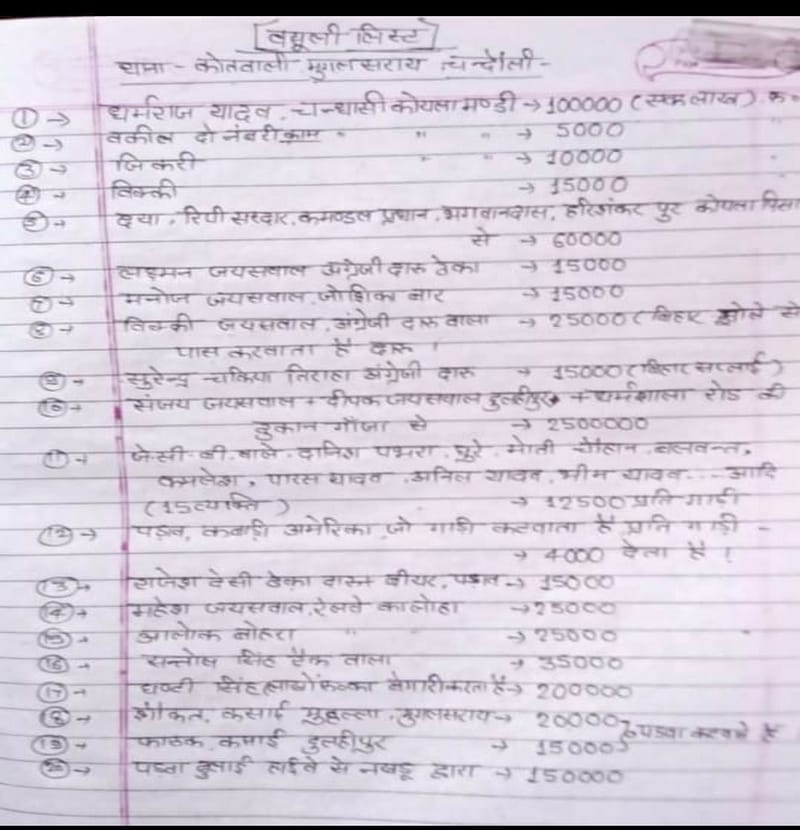 वसूली लिस्ट
थाना - कोतवाली मुगलसराय चन्दौली -
① → धर्मराज यादव, चन्धासी कोयला मण्डी → 100000 (एक लाख) रू
② → वकील दो नंबरी काम " " " → 5000
③ → " " → 10000
④ → विक्की → 15000
⑤ → दया, सरदार, कमण्डल प्रधान, भगवानदास, हरिशंकर पुर कोयला
से → 60000
⑥ → जयसवाल अंग्रेजी दारू ठेका → 15000
⑦ → मनोज जयसवाल, बार → 15000
⑧ → विक्की जयसवाल, अंग्रेजी दारू वाला → 25000 (बिहार से
पास करवाता है दारू ।
⑨ → सुरेन्द्र चकिया तिराहा अंग्रेजी दारू → 15000 (बिहार सप्लाई)
⑩ → संजय जयसवाल + दीपक जयसवाल दुलहीपुर + धर्मशाला रोड की
दुकान गाँजा से → 2500000
⑪ → जे.सी.बी. वाले, घुरे, मोती चौहान, बलवन्त,
कमलेश, पारस यादव, अनिल यादव, भीम यादव... आदि
(15 व्यक्ति) → 12500 प्रति गाड़ी
⑫ → पड़ाव, कबाड़ी अमेरिका, जो गाड़ी कटवाता है प्रति गाड़ी -
→ 4000 देता है ।
⑬ → राजेश देसी ठेका बीयर, पड़ाव → 15000
⑭ → महेश जयसवाल, रेलवे का लोहा → 25000
⑮ → आलोक बोहरा " " → 25000
⑯ → सन्तोष सिंह वाला → 35000
⑰ → घण्टी सिंह है → 200000
⑱ → कसाई मुहल्ला, मुगलसराय → 20000
⑲ → फाटक, कसाई दुलहीपुर → 15000 } पड़वा कटवाते है
⑳ → हाईवे से द्वारा → 150000